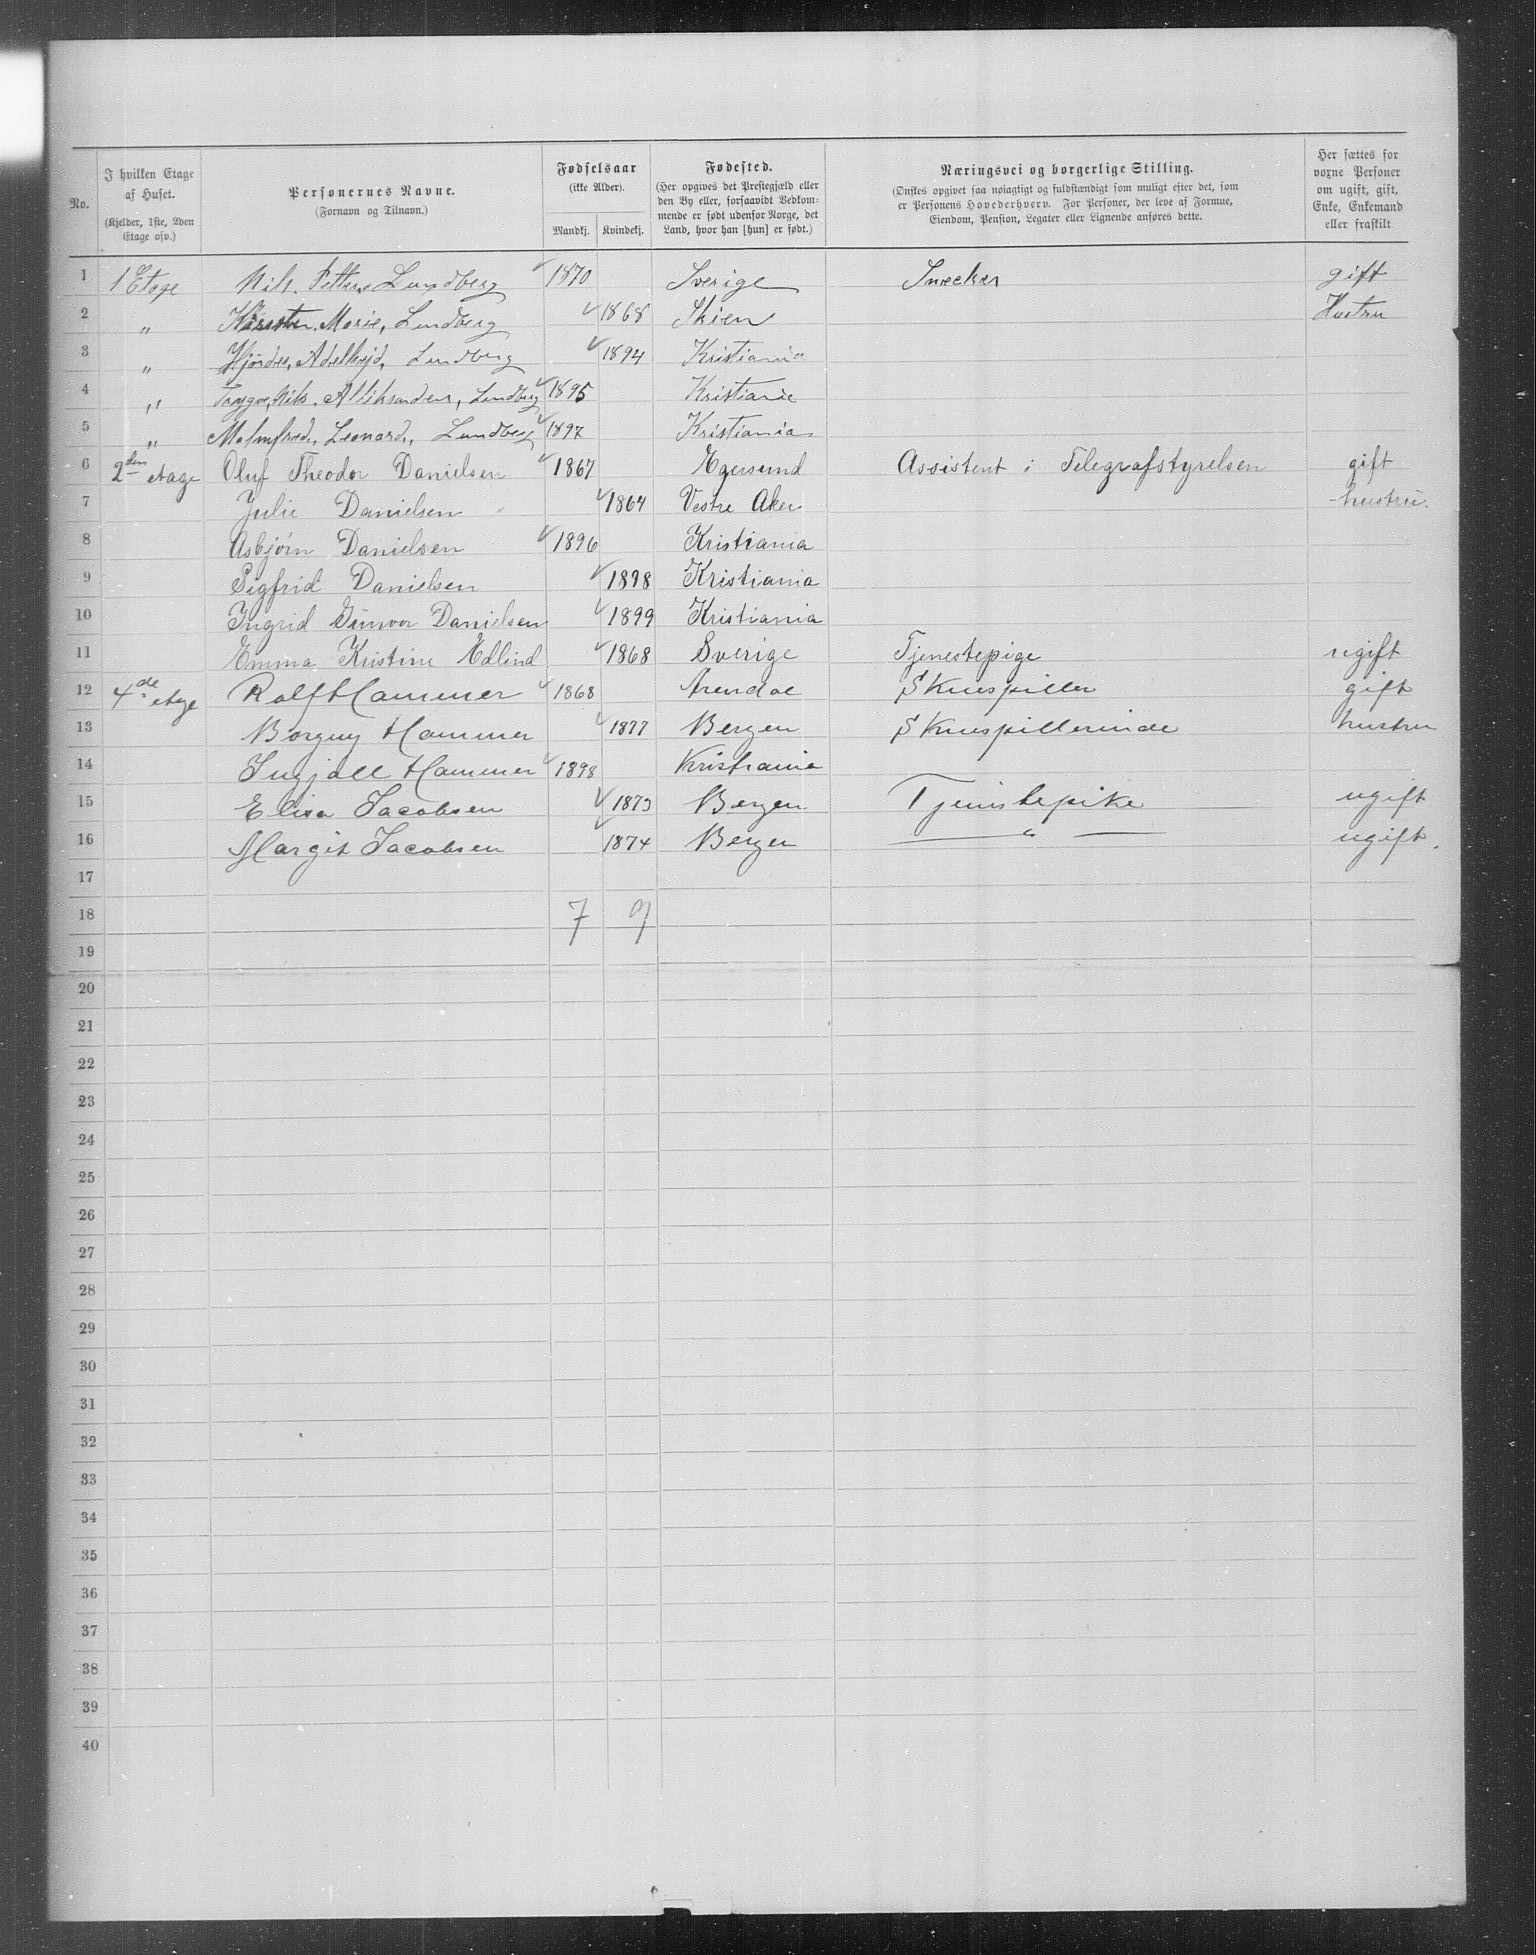 No. | I hvilken Etage af Huset. (Kjelder, 1ste, 2den Etage osv.) | Personernes Navne. (Fornavn og Tilnavn.) | Fødselsaar (ikke Alder). Mandkj. | Kvindekj. | Fødested. (Her opgives det Prestegjæld eller den By eller, forsaavidt Vedkommende er født udenfor Norge, det Land, hvor han [hun] er født.) | Næringsvei og borgerlige Stilling. (Ønskes opgivet saa nøiagtigt og fuldstændigt som muligt efter det, som er Personens Hovederhverv. For Personer, der leve af Formue, Eiendom, Pension, Legater eller Lignende anføres dette.) | Her sættes for voxne Personer om ugift, gift, Enke, Enkemand eller fraskilt
1 | 1 Etage | Nils. Petter. Lundberg | 1870 | | Sverige | Snecker | gift
2 | " | Marie, Lundberg | | 1868 | Skien | | Hustru
3 | " | Hjördis, Adelheid, Lundberg | | 1894 | Kristiania
4 | " | Trygve, Nik. Alliksander, Lundberg | 1895 | | Kristiania
5 | " | Malmfred, Leonard, Lundberg | 1897 | | Kristiania
6 | 2den etage | Oluf Theodor Danielsen | 1867 | | Egersund | Assistent i Telegrafstyrelsen | gift
7 | | Julie Danielsen | | 1864 | Vestre Aker | | hustru.
8 | | Asbjörn Danielsen | 1896 | | Kristiania
9 | | Sigfrid Danielsen | | 1898 | Kristiania
10 | | Ingrid Gunvor Danielsen | | 1899 | Kristiania
11 | | Emma Kristine Edlind | | 1868 | Sverige | Tjenestepige | ugift
12 | 4de etage | Rolf Hammer | 1868 | | Arendal | Skuespiller | gift
13 | | Borgny Hammer | | 1877 | Bergen | Skuespillerinde | hustru
14 | | Ingjald Hammer | 1898 | | Kristiania
15 | | Elisa Jacobsen | | 1873 | Bergen | Tjenistepike | ugift
16 | | Margit Jacobsen | | 1874 | Bergen | " | ugift.
17
18 | | | 7 | 9
19
20
21
22
23
24
25
26
27
28
29
30
31
32
33
34
35
36
37
38
39
40